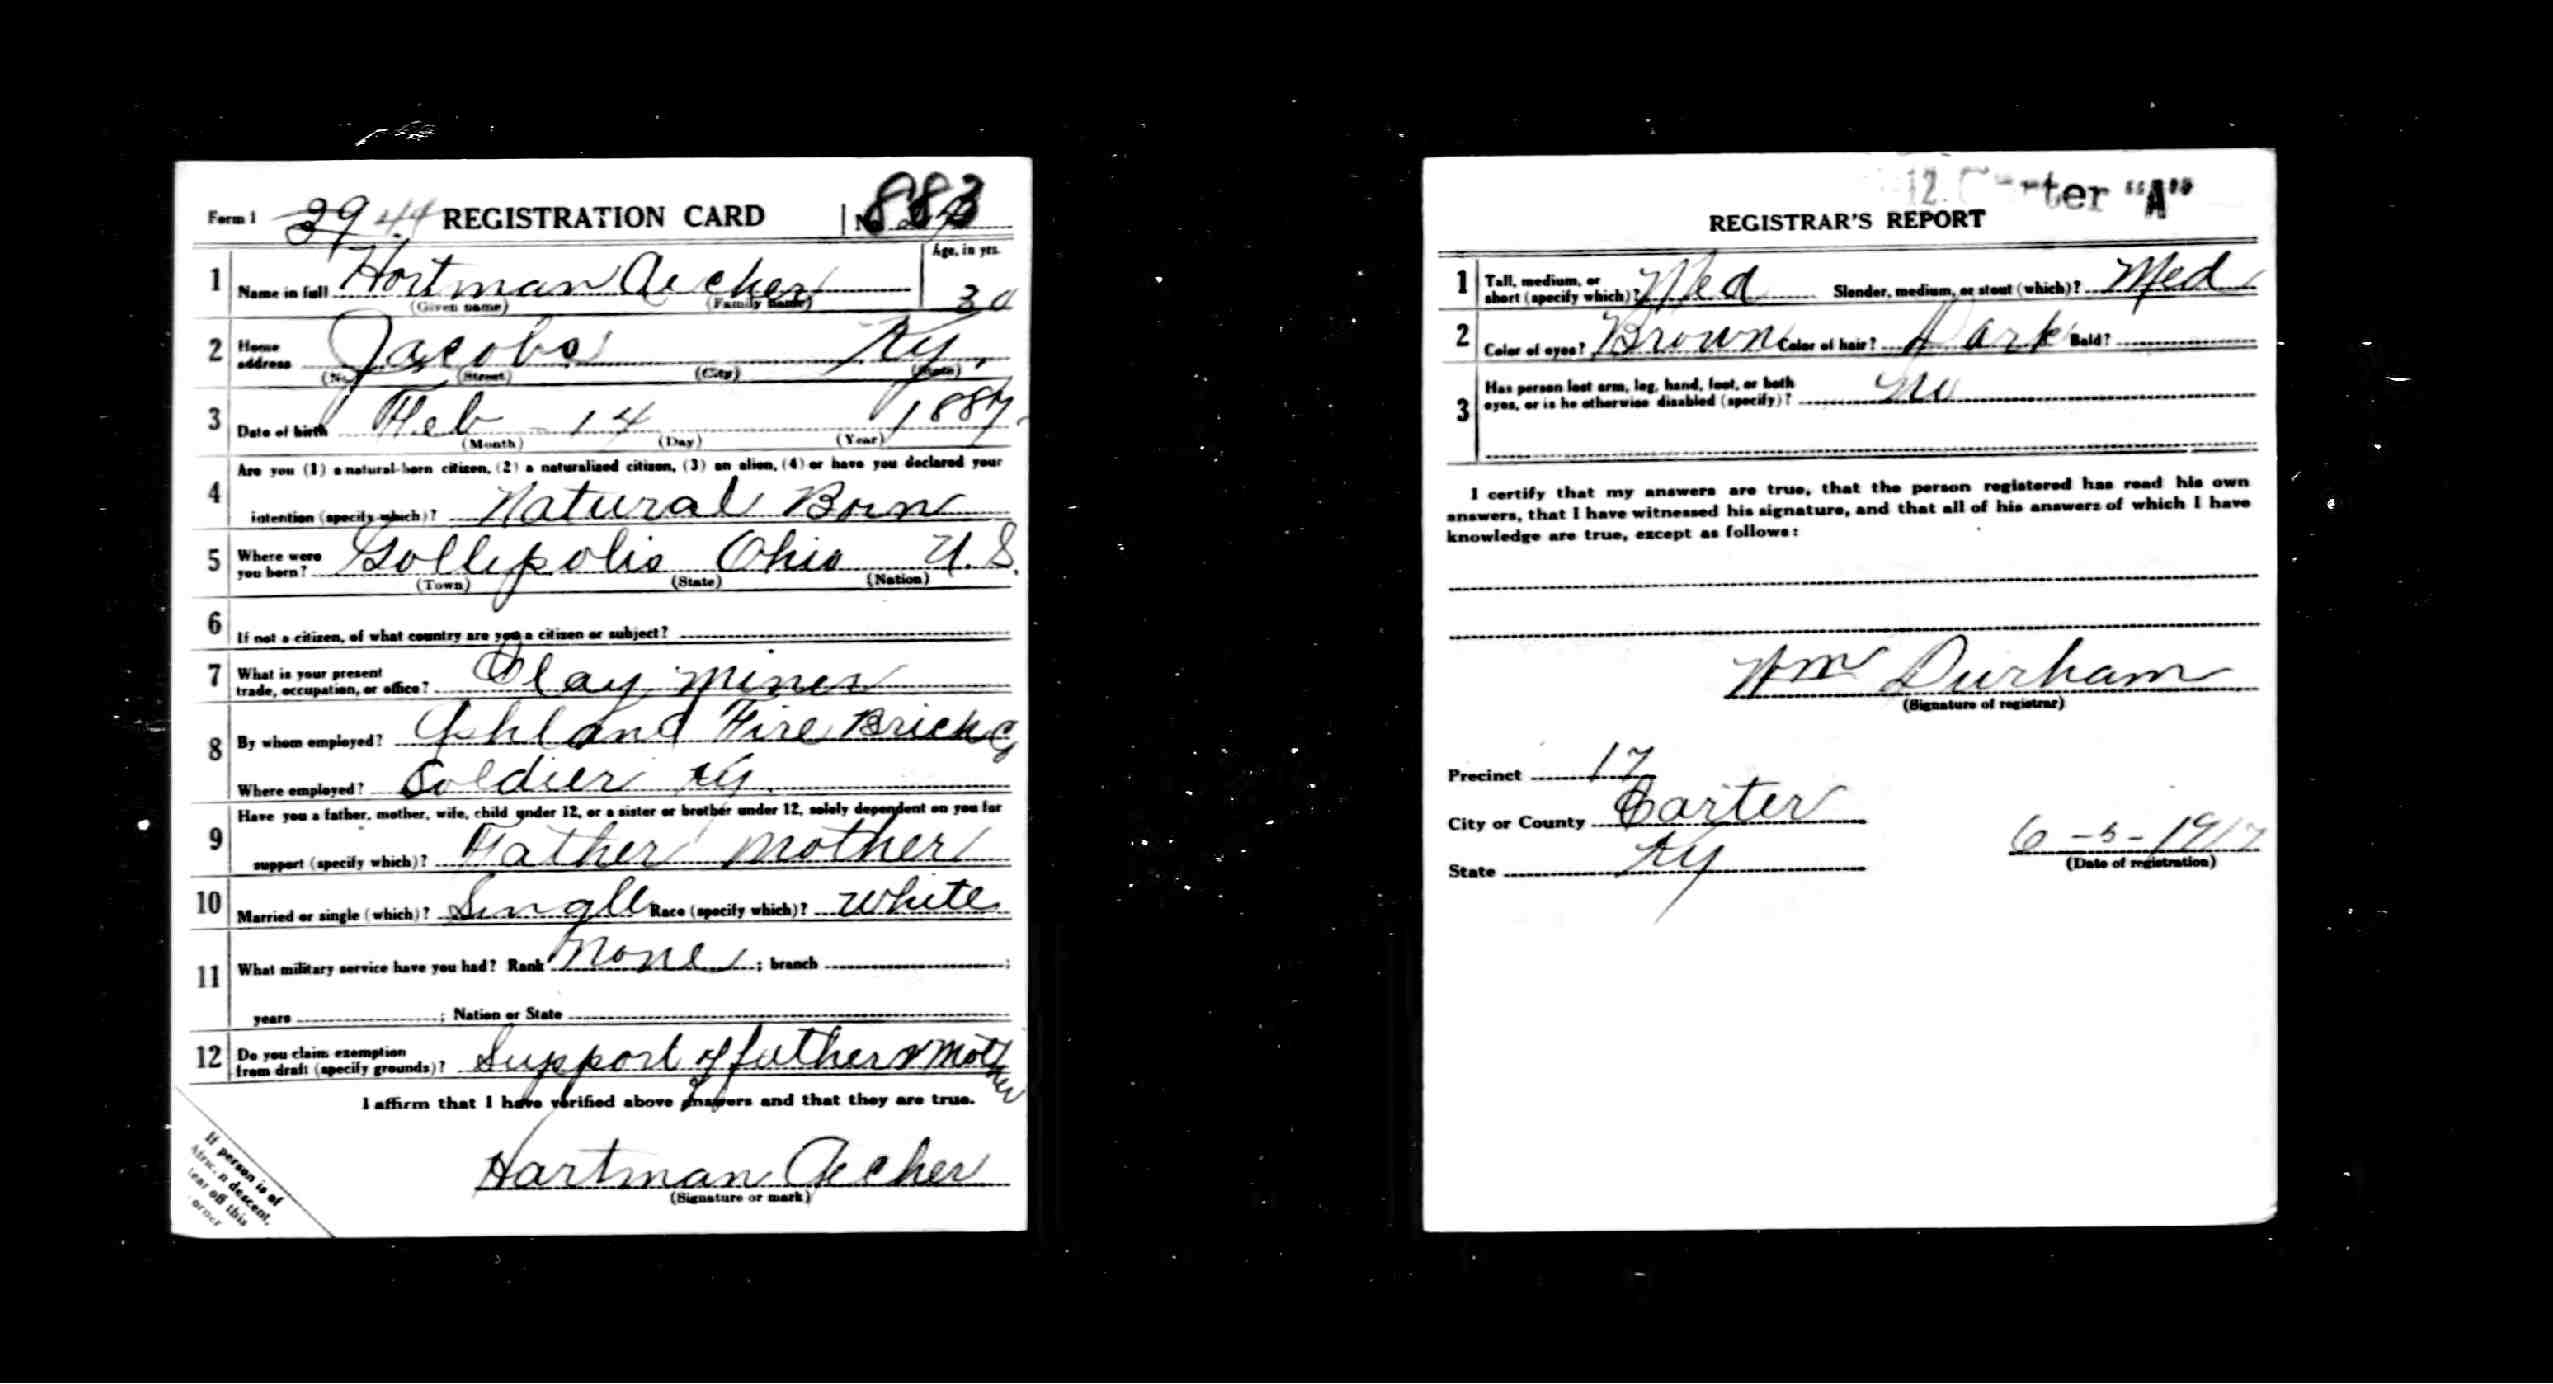 Form 1 39 44 REGISTRATION CARD No. 883
Age, in yrs.
1 Name in full Hortman Aecher 30
(Given name) (Family name)
2 Home address Jacobs Ky,
(No.) (Street) (City) (State)
3 Date of birth Feb 14 1887
(Month) (Day) (Year)
Are you (1) a natural-born citizen, (2) a naturalized citizen, (3) an alien, (4) or have you declared your
4 intention (specify which)? Natural Born
5 Where were you born? Gollipolis Ohio U.S.
(Town) (State) (Nation)
6 If not a citizen, of what country are you a citizen or subject?
7 What is your present trade, occupation, or office? Clay Miner
8 By whom employed? Ashland Fire Brick Co
Where employed? Soldier Ky.
Have you a father, mother, wife, child under 12, or a sister or brother under 12, solely dependent on you for
9 support (specify which)? Father mother
10 Married or single (which)? Single Race (specify which)? White
11 What military service have you had? Rank None; branch ;
years ; Nation or State
12 Do you claim exemption from draft (specify grounds)? Support of father & Mother
I affirm that I have verified above answers and that they are true.
Hartman Aecher
(Signature or mark)
If person is of
African descent,
tear off this
corner
12. Carter "A"
REGISTRAR'S REPORT
1 Tall, medium, or short (specify which)? Med Slender, medium, or stout (which)? Med
2 Color of eyes? Brown Color of hair? Dark Bald?
3 Has person lost arm, leg, hand, foot, or both
eyes, or is he otherwise disabled (specify)? no
I certify that my answers are true, that the person registered has read his own
answers, that I have witnessed his signature, and that all of his answers of which I have
knowledge are true, except as follows:
Wm Durham
(Signature of registrar)
Precinct 17
City or County Carter
State Ky
6-5-1917
(Date of registration)